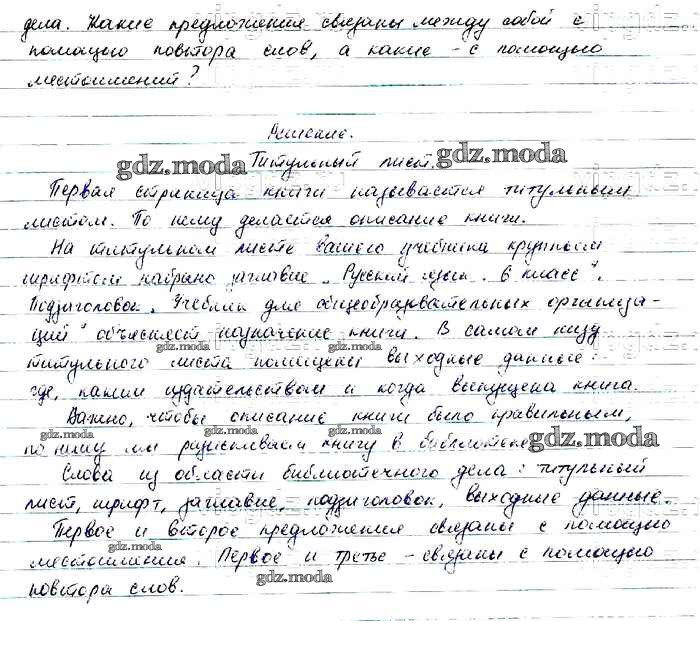 дела. Какие предложения связаны между собой с
помощью повтора слов, а какие - с помощью
местоимений?
Решение.
gdz.moda
Титульный лист.
gdz.moda
Первая страница книги называется титульным
листом. По нему делается описание книги.
На титульном листе вашего учебника крупным
шрифтом набрано заглавие „Русский язык. 6 класс".
Подзаголовок „Учебник для общеобразовательных организа-
ций" объясняет назначение книги. В самом низу
gdz.moda gdz.moda
титульного листа помещены выходные данные:
где, каким издательством и когда выпущена книга.
Важно, чтобы описание книги было правильным,
gdz.moda gdz.moda gdz.moda
по нему мы разыскиваем книгу в библиотеке
Слова из области библиотечного дела: титульный
лист, шрифт, заглавие, подзаголовок, выходные данные.
Первое и второе предложения связаны с помощью
gdz.moda
местоимения. Первое и третье - связаны с помощью
gdz.moda
повтора слов.